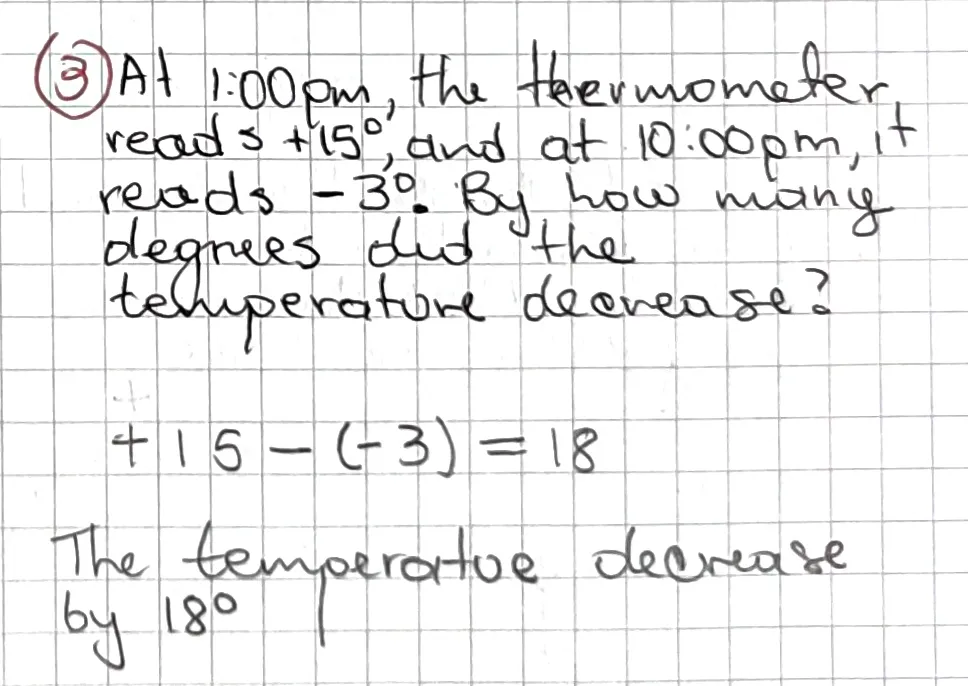 ③ At 1:00pm, the thermometer
reads +15°, and at 10:00pm, it
reads -3°. By how many
degrees did the
temperature decrease?
+15 - (-3) = 18
The temperatue decrease
by 18°